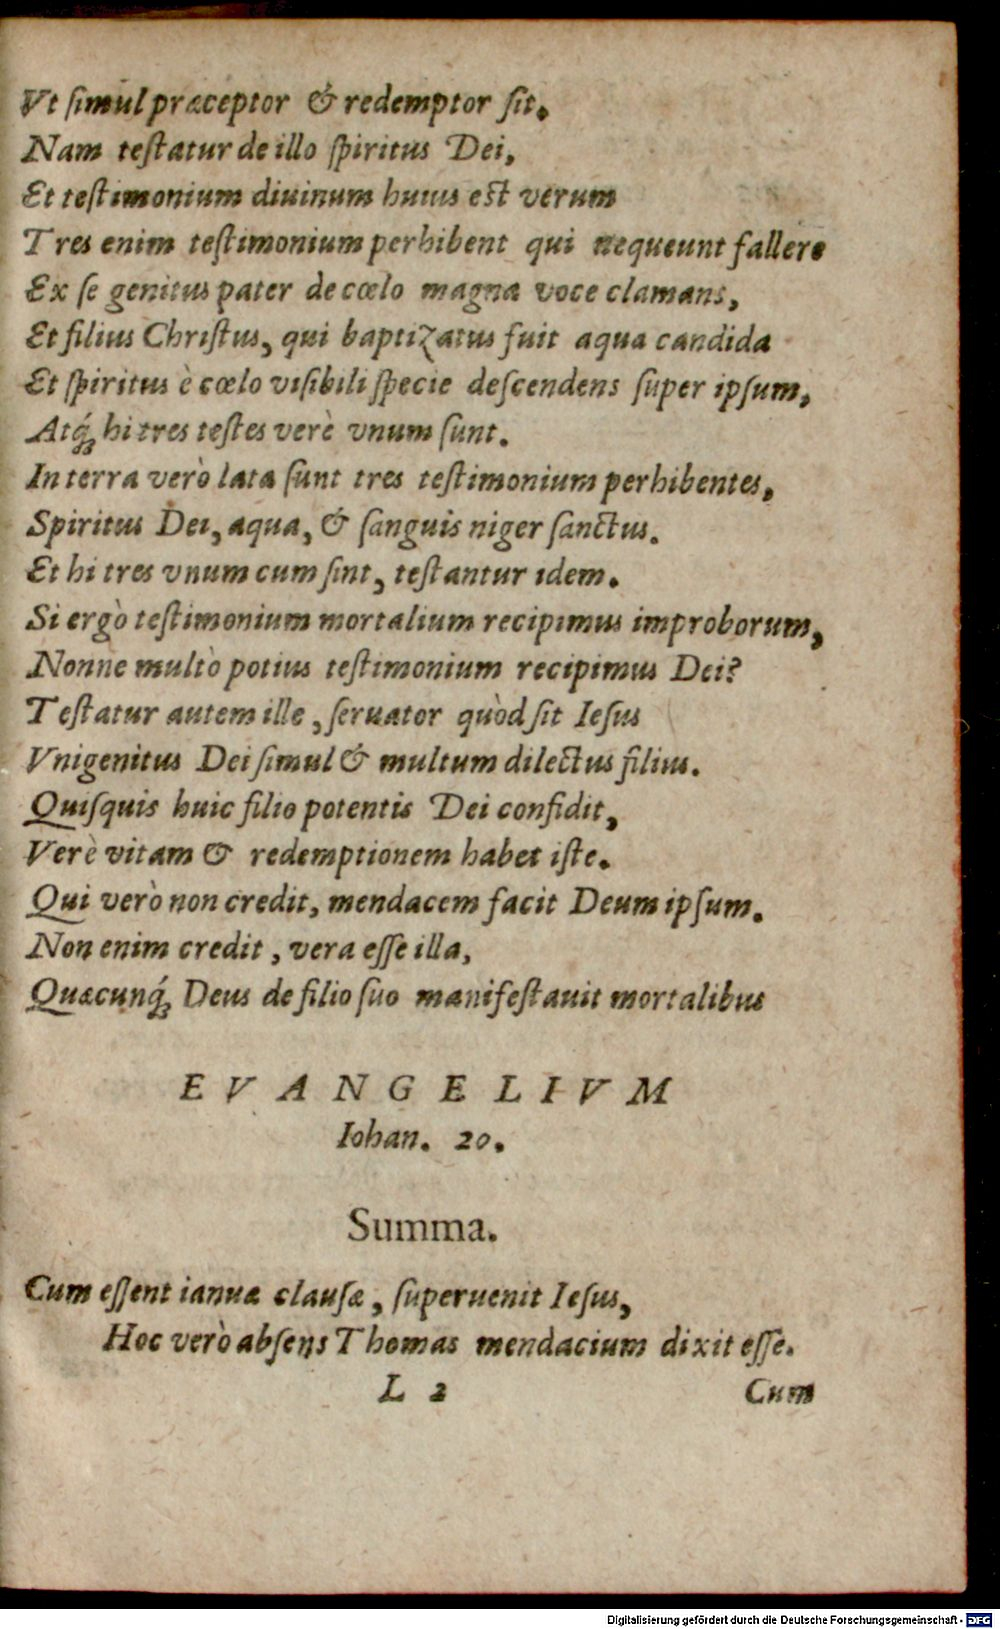 Vt ſimul præceptor & redemptor ſit.
Nam teſtatur de illo ſpiritus Dei,
Et teſtimonium diuinum huius eſt verum
Tres enim teſtimonium perhibent qui nequeunt fallere
Ex ſe genitus pater de cœlo magna voce clamans,
Et filius Chriſtus, qui baptizatus fuit aqua candida
Et ſpiritus è cœlo viſibili ſpecie deſcendens ſuper ipſum,
Atq́; hi tres teſtes verè vnum ſunt.
In terra verò lata ſunt tres teſtimonium perhibentes,
Spiritus Dei, aqua, & ſanguis niger ſanctus.
Et hi tres vnum cum ſint, teſtantur idem.
Si ergò teſtimonium mortalium recipimus improborum,
Nonne multò potius teſtimonium recipimus Dei?
Teſtatur autem ille, ſeruator quòd ſit Ieſus
Vnigenitus Dei ſimul & multum dilectus filius.
Quiſquis huic filio potentis Dei confidit,
Verè vitam & redemptionem habet iſte.
Qui verò non credit, mendacem facit Deum ipſum.
Non enim credit, vera eſſe illa,
Quæcunq́; Deus de filio ſuo manifeſtauit mortalibus
EVANGELIVM
Iohan. 20.
Summa.
Cum eſſent ianuæ clauſæ, ſuperuenit Ieſus,
Hoc verò abſens Thomas mendacium dixit eſſe.
L 2 Cum
Digitalisierung gefördert durch die Deutsche Forschungsgemeinschaft - DFG